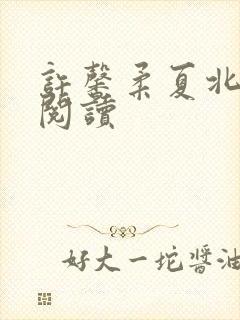 許馨柔夏北
閱讀
好大一坨醬油